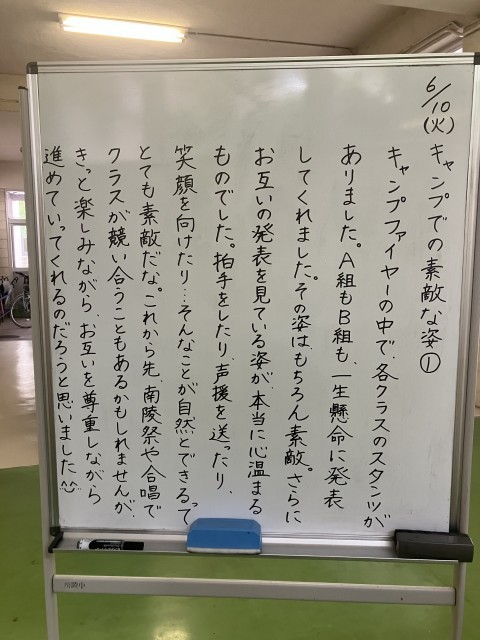 6/10(火)
キャンプでの素敵な姿①
キャンプファイヤーの中で、各クラスのスタンツが
ありました。A組もB組も、一生懸命に発表
してくれました。その姿は、もちろん素敵。さらに
お互いの発表を見ている姿が、本当に心温まる
ものでした。拍手をしたり、声援を送ったり、
笑顔を向けたり…そんなことが自然とできるって
とても素敵だな。これから先、南陵祭や合唱で
クラスが競い合うこともあるかもしれませんが、
きっと楽しみながら、お互いを尊重しながら
進めていってくれるのだろうと思いました^^